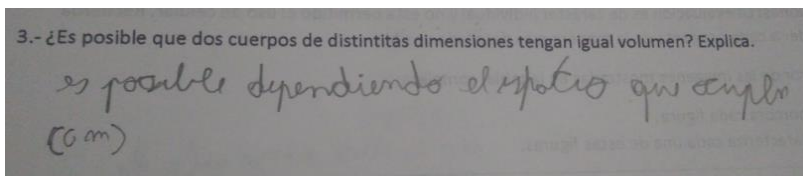 3.- ¿Es posible que dos cuerpos de distintitas dimensiones tengan igual volumen? Explica.
es posible dependiendo el espatio que ocupen
(cm)